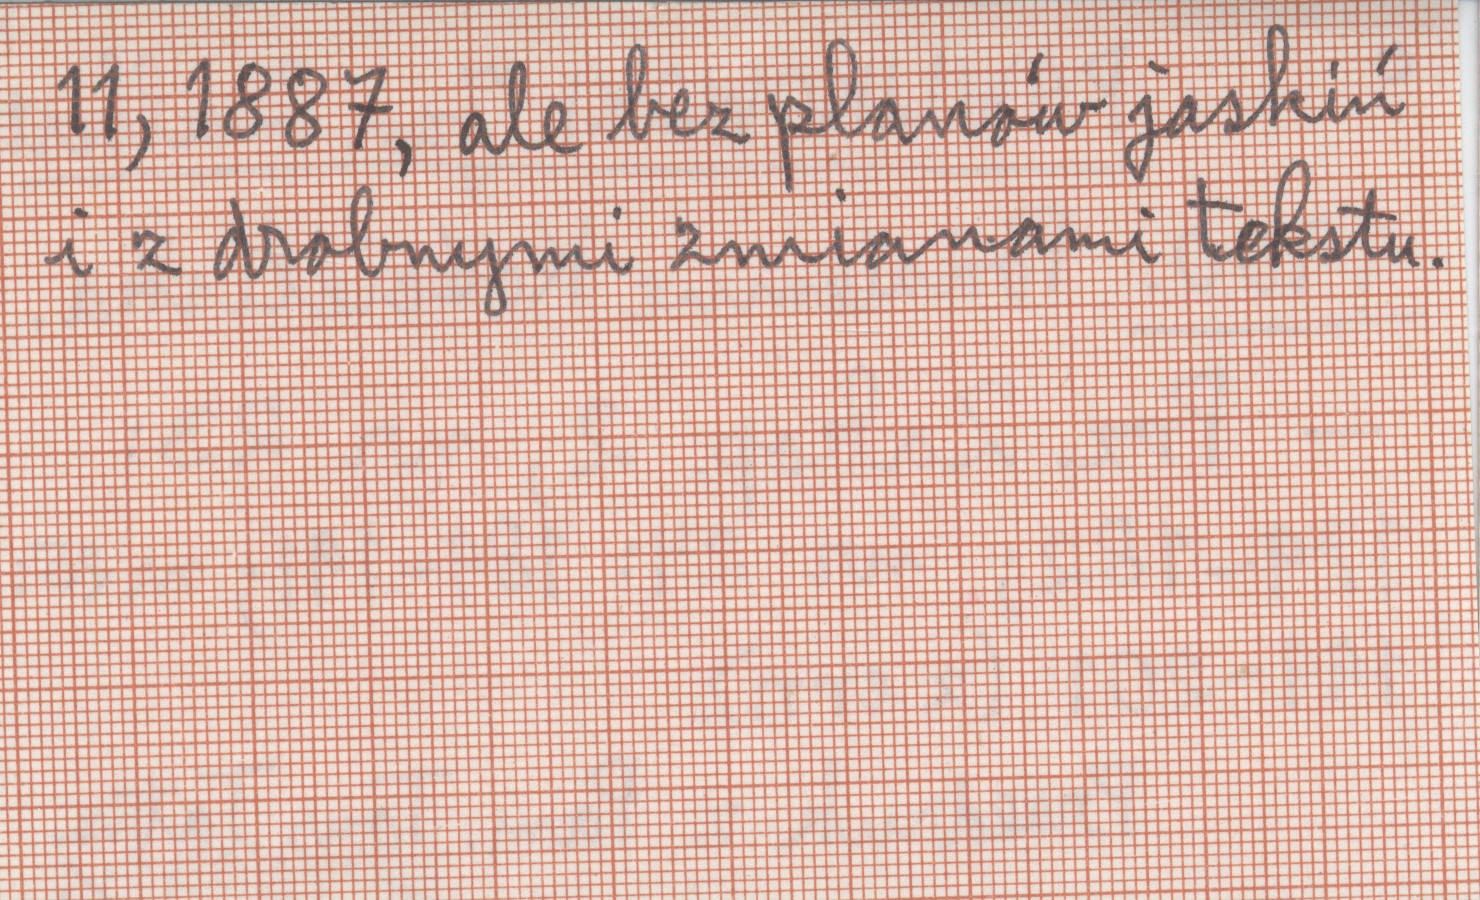 11, 1887, ale bez planów jaskiń
i z drobnymi zmianami tekstu.